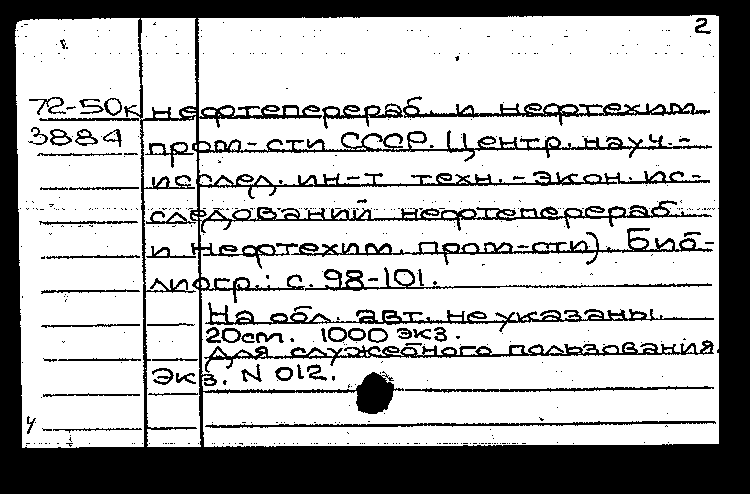 2
72-50к нефтеперераб. и нефтехим.
3884 пром-сти СССР. Центр. науч.-
исслед. ин-т техн.-экон. ис-
следований нефтеперераб.
и нефтехим. пром-сти). Биб-
лиогр.: с. 98-101.
На обл. авт. не указаны.
20см. 1000 экз.
Для служебного пользования.
Экз. N 012.